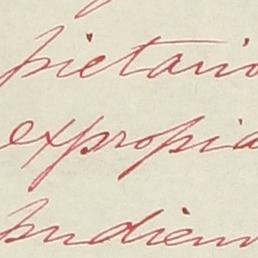 pietario
expropia
pudien